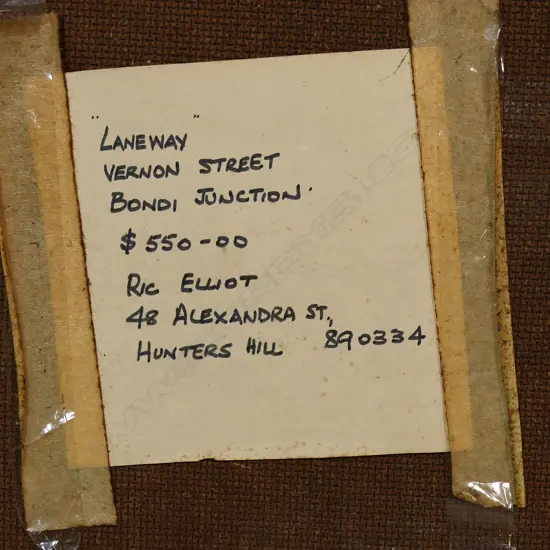 "LANEWAY"
VERNON STREET
BONDI JUNCTION.
$550-00
RIC ELLIOT
48 ALEXANDRA ST.,
HUNTERS HILL 890334